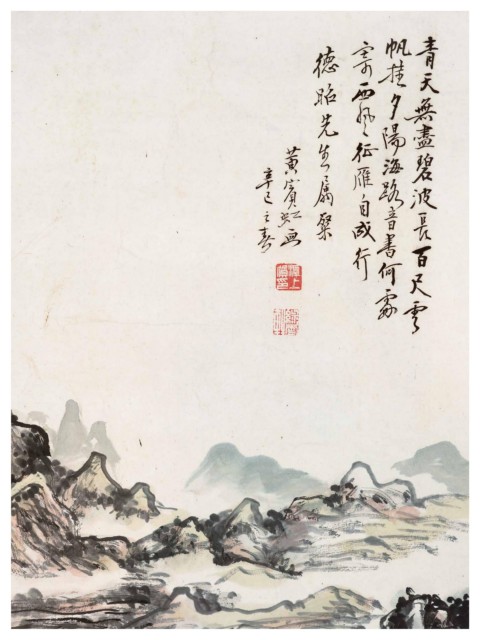 青天無盡碧波長百尺雲
帆挂夕陽海路音書何處
寄西風征雁自成行
德昭先生屬粲
黃賓虹画
辛巳之春